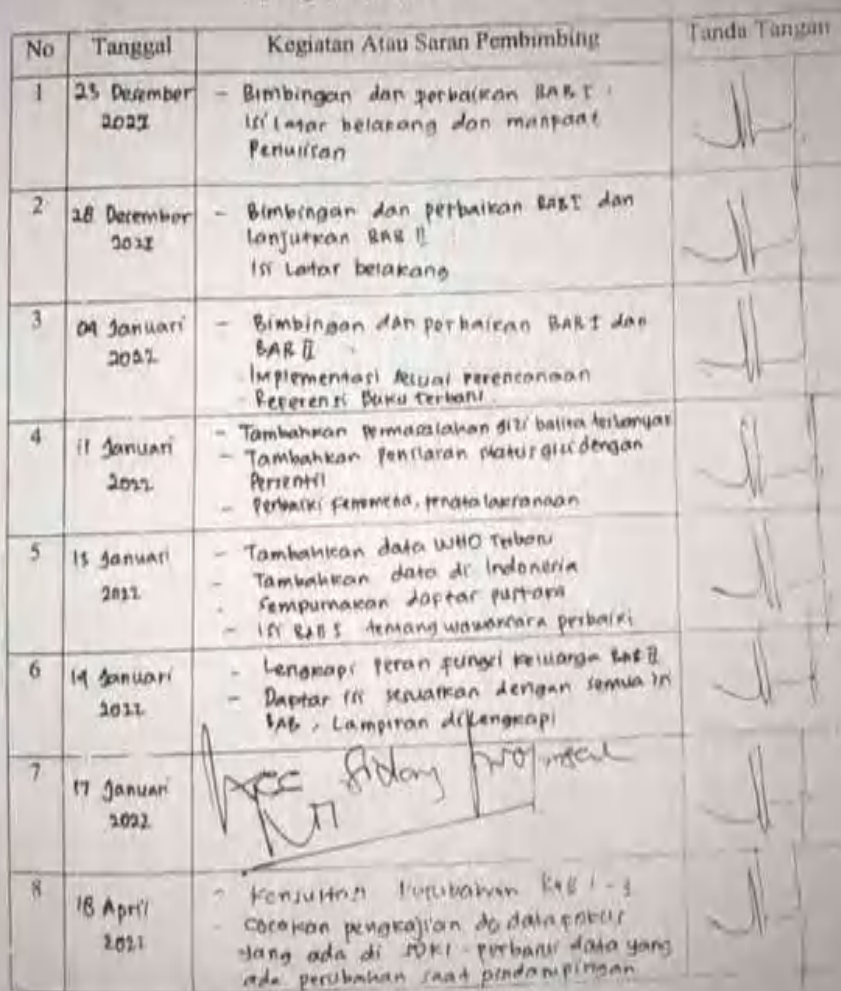 No Tanggal Kegiatan Atau Saran Pembimbing Tanda Tangan
1 23 Desember - Bimbingan dan perbaikan BAB I
isi latar belakang dan manpaat
Penulisan
2 28 Desember - Bimbingan dan perbaikan BAB I dan
lanjutkan BAB II
Isi Latar belakang
3 Januari - Bimbingan dan perbaikan BAB I dan
2022 BAB II
Implementasi sesuai perencanaan
- Referensi Buku terbaru
4 11 Januari - Tambahkan permasalahan gizi balita terbanyak
2022 - Tambahkan Penilaian status gizi dengan
Persentil
- Perbaiki fenomena, penatalaksanaan
5 Januari - Tambahkan data WHO Terbaru
2022 - Tambahkan data di Indonesia
- Sempurnakan daptar pustaka
- isi BAB tentang wawancara perbaiki
6 14 Januari - Lengkapi peran fungsi keluarga BAB II
2022 - Daptar isi sesuaikan dengan semua isi
BAB, Lampiran dilengkapi
7 17 Januari Acc Sidang proposal
2022
8 18 April - Konsultasi Perubahan BAB 1-3
- Cocokan pengkajian dg data fokus
yang ada di SDKI - perbarui data yang
ada perubahan saat pendampingan